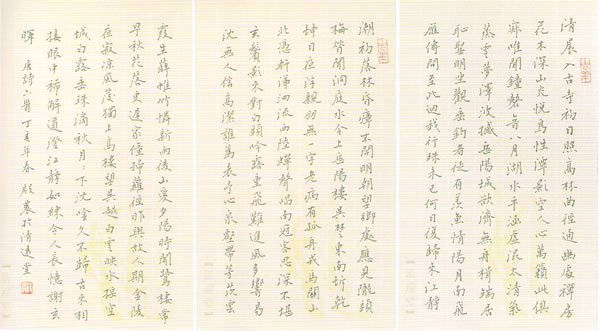 清晨入古寺初日照高林曲徑通幽處禪房
花木深山光悦鳥性潭影空人心萬籟此俱
寂唯聞鍾磬音八月湖水平涵虛混太清氣
蒸雲夢澤波撼岳陽城欲濟無舟楫端居
恥聖明坐觀垂釣者徒有羨魚情陽月南飛
雁傳聞至此迴我行殊未已何日復歸來江静
潮初落林昏瘴不開明朝望鄉處應見隴頭
梅昔聞洞庭水今上岳陽樓吳楚東南坼乾
坤日夜浮親朋無一字老病有孤舟戎馬關山
北憑軒涕泗流西陸蟬聲唱南冠客思深不堪
玄鬢影來對白頭吟露重飛難進風多響易
沈無人信高潔誰為表予心泉壑帶茅茨雲
霞生薜帷竹憐新雨後山愛夕陽時閒鷺棲常
早秋花落更遲家僮掃蘿徑昨與故人期金陵
夜寂涼風發獨上高樓望吳越白雲映水搖空
城白露垂珠滴秋月下沈吟久不歸古來相
接眼中稀解道澄江静如練令人長憶謝玄
暉 唐詩六首 丁亥年春 於清遠堂